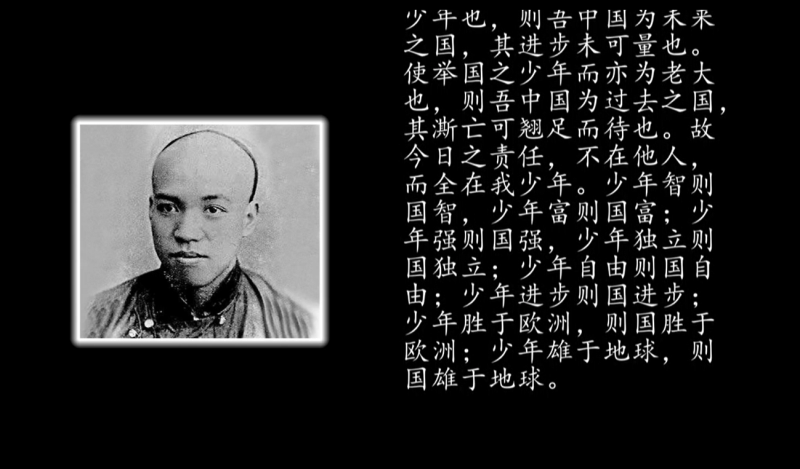 少年也，则吾中国为未来
之国，其进步未可量也。
使举国之少年而亦为老大
也，则吾中国为过去之国，
其澌亡可翘足而待也。故
今日之责任，不在他人，
而全在我少年。少年智则
国智，少年富则国富；少
年强则国强，少年独立则
国独立；少年自由则国自
由；少年进步则国进步；
少年胜于欧洲，则国胜于
欧洲；少年雄于地球，则
国雄于地球。